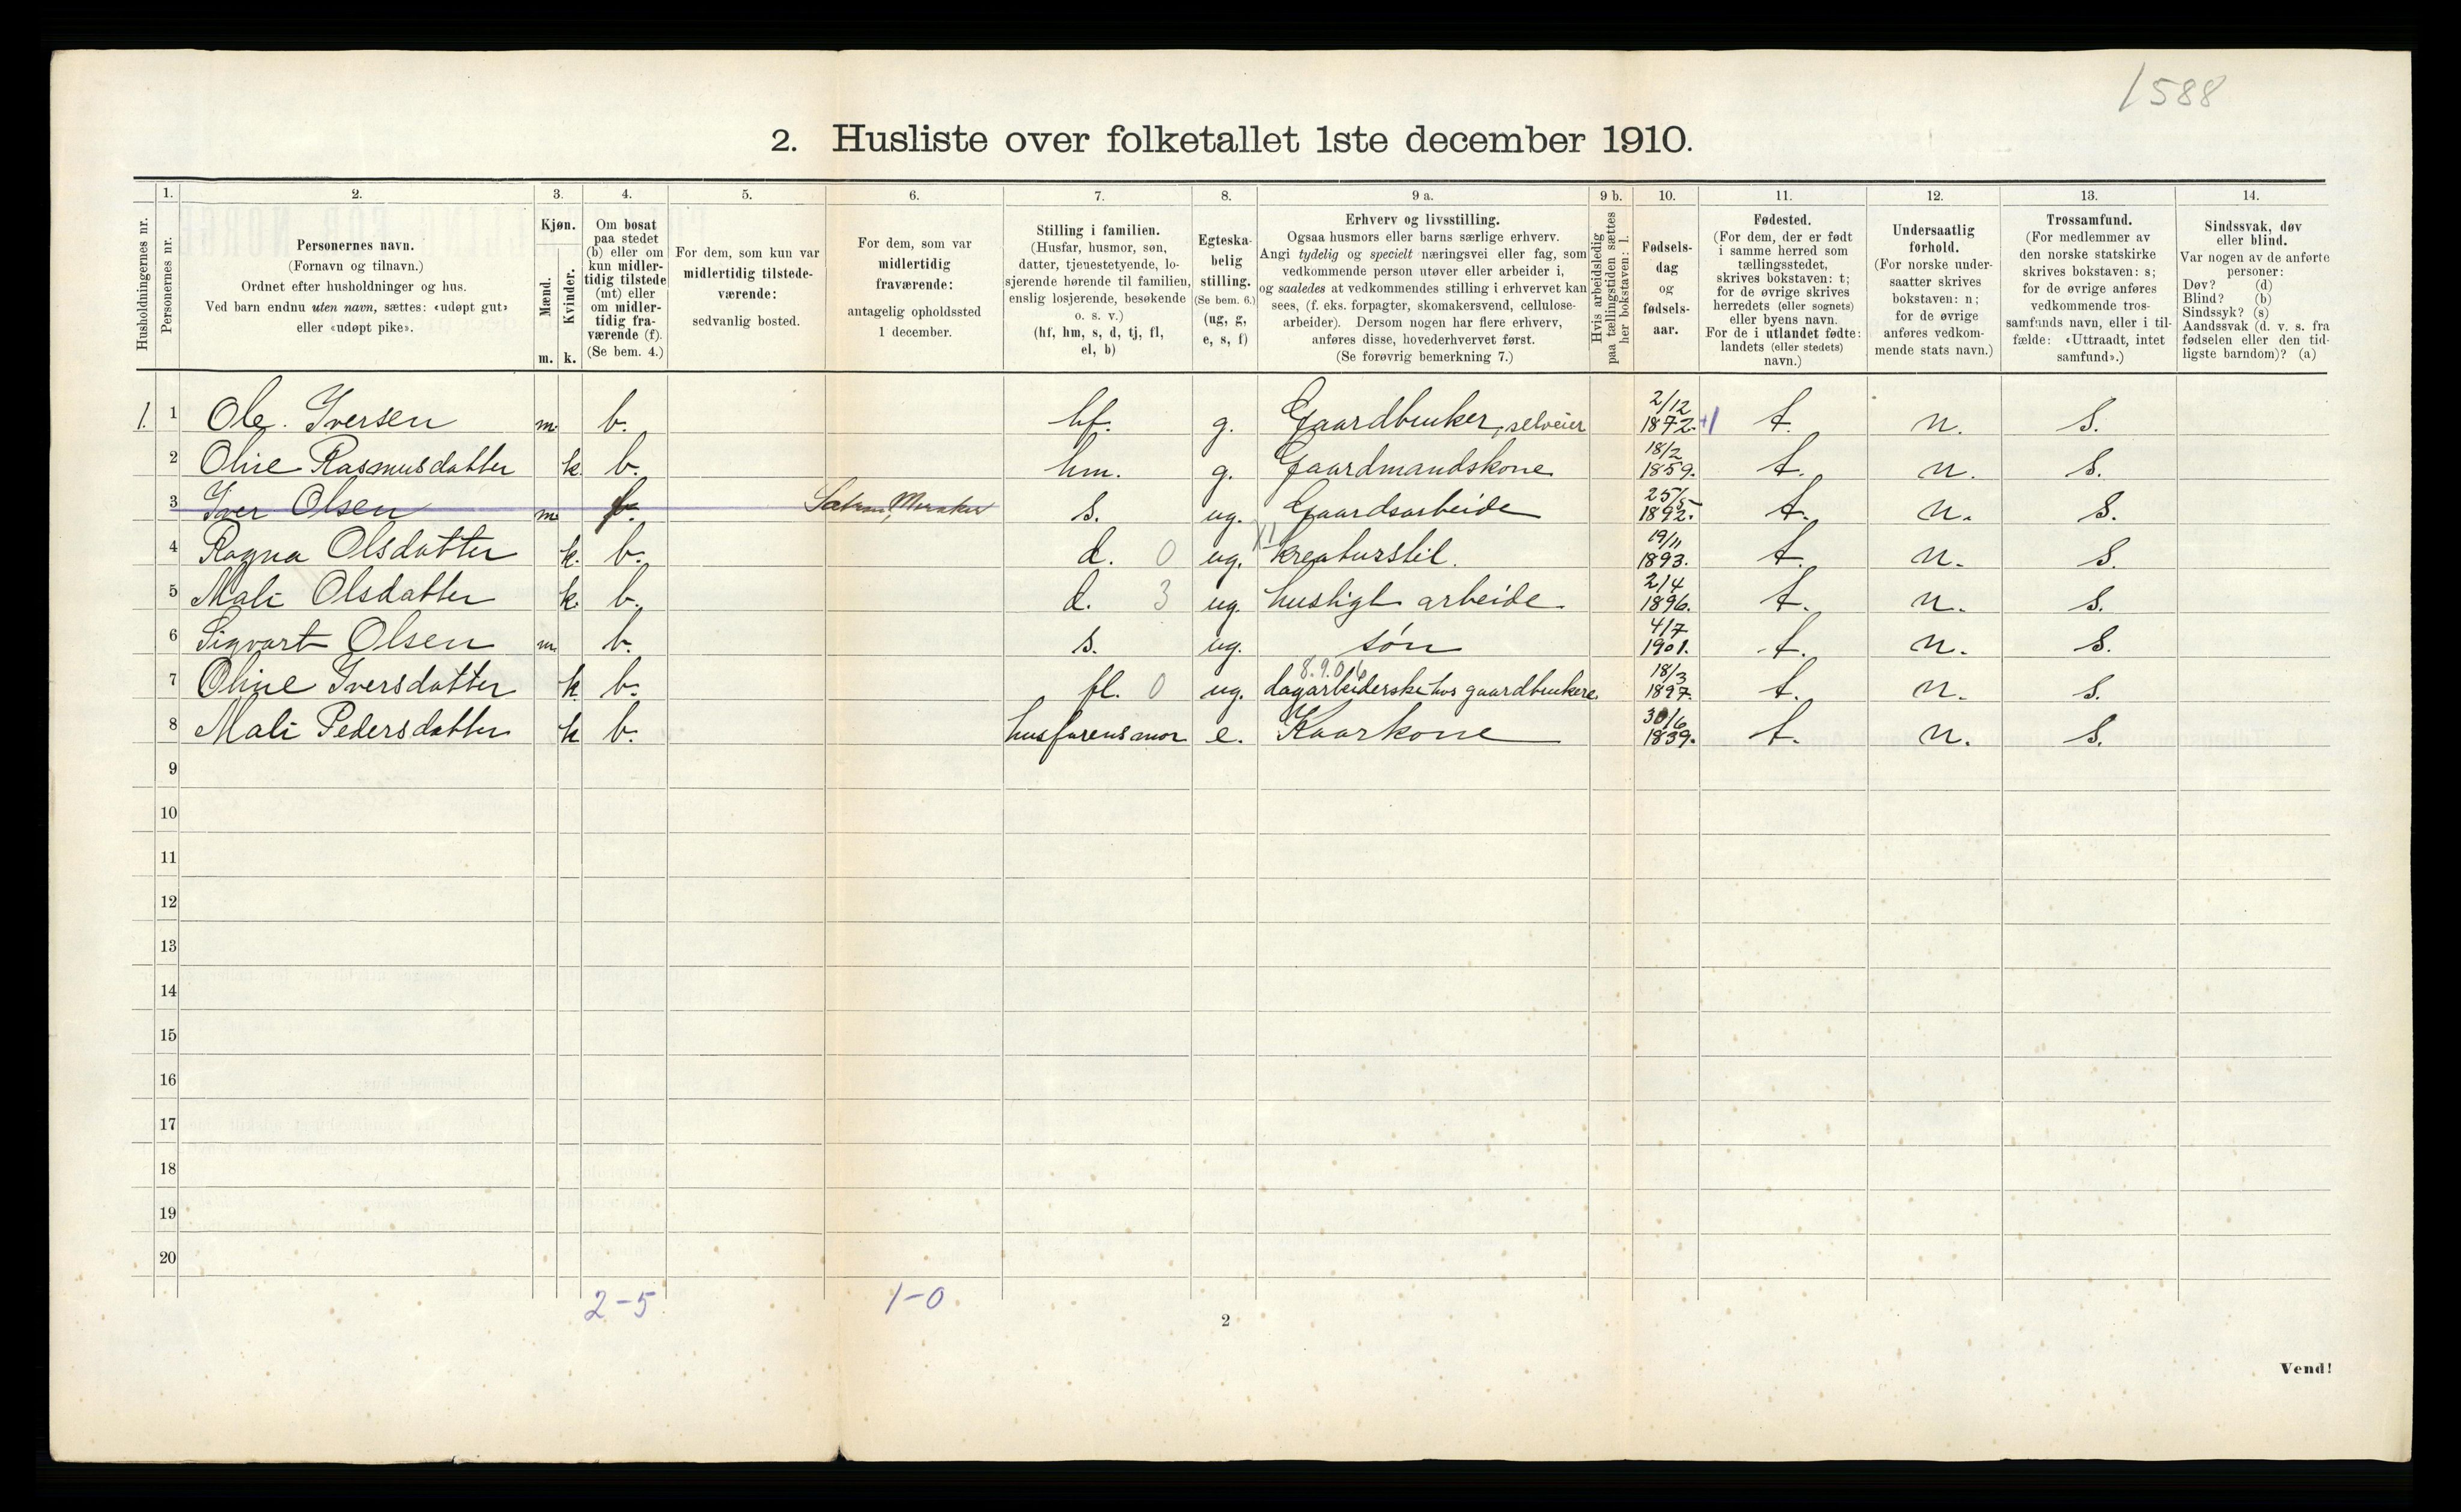 1588
2. Husliste over folketallet 1ste december 1910.
Husholdningernes nr.
1.
Personernes nr.
2.
Personernes navn.
(Fornavn og tilnavn.)
Ordnet efter husholdninger og hus.
Ved barn endnu uten navn, sættes: «udøpt gut»
eller «udøpt pike».
3.
Kjøn.
Mænd.
Kvinder.
m. k.
4.
Om bosat
paa stedet
(b) eller om
kun midler-
tidig tilstede
(mt) eller
om midler-
tidig fra-
værende (f).
(Se bem. 4.)
5.
For dem, som kun var
midlertidig tilstede-
værende:
sedvanlig bosted.
6.
For dem, som var
midlertidig
fraværende:
antagelig opholdssted
1 december.
7.
Stilling i familien.
(Husfar, husmor, søn,
datter, tjenestetyende, lo-
sjerende hørende til familien,
enslig losjerende, besøkende
o. s. v.)
(hf, hm, s, d, tj, fl,
el, b)
8.
Egteska-
belig
stilling.
(Se bem. 6.)
(ug, g,
e, s, f)
9 a.
Erhverv og livsstilling.
Ogsaa husmors eller barns særlige erhverv.
Angi tydelig og specielt næringsvei eller fag, som
vedkommende person utøver eller arbeider i,
og saaledes at vedkommendes stilling i erhvervet kan
sees, (f. eks. forpagter, skomakersvend, cellulose-
arbeider). Dersom nogen har flere erhverv,
anføres disse, hovederhvervet først.
(Se forøvrig bemerkning 7.)
9 b.
Hvis arbeidsledig
paa tællingstiden sættes
her bokstaven: l.
10.
Fødsels-
dag
og
fødsels-
aar.
11.
Fødested.
(For dem, der er født
i samme herred som
tællingsstedet,
skrives bokstaven: t;
for de øvrige skrives
herredets (eller sognets)
eller byens navn.
For de i utlandet fødte:
landets (eller stedets)
navn.)
12.
Undersaatlig
forhold.
(For norske under-
saatter skrives
bokstaven: n;
for de øvrige
anføres vedkom-
mende stats navn.)
13.
Trossamfund.
(For medlemmer av
den norske statskirke
skrives bokstaven: s;
for de øvrige anføres
vedkommende tros-
samfunds navn, eller i til-
fælde: «Uttraadt, intet
samfund».)
14.
Sindssvak, døv
eller blind.
Var nogen av de anførte
personer:
Døv? (d)
Blind? (b)
Sindssyk? (s)
Aandssvak (d. v. s. fra
fødselen eller den tid-
ligste barndom)? (a)
1. 1 Ole Iversen m b. hf. g. Gaardbruker, selveier 2/12 1872. +1 t. n. s.
2 Oline Rasmusdatter k. b. hm. g. Gaardmandskone 18/2 1859. t. n. s.
3 Iver Olsen m Meraker s. ug. Gaardsarbeide 25/5 1892. t. n. s.
4 Ragna Olsdatter k. b. d. 0 ug. kreaturstel. 19/11 1893. t. n. s.
5 Mali Olsdatter k. b. d. 3 ug. husligt arbeide. 2/4 1896. t. n. s.
6 Sigvart Olsen m. b. s. ug. søn 4/7 1901. t. n. s.
8.9.06
7 Oline Iversdatter k b. fl. 0 ug. dagarbeiderske hos gaardbrukere 18/3 1897. t. n. s.
8 Mali Pedersdatter k b. husfarens mor e. Kaarkone 30/6 1839. t. n. s.
9
10
11
12
13
14
15
16
17
18
19
20
2-5 1-0
2
Vend!